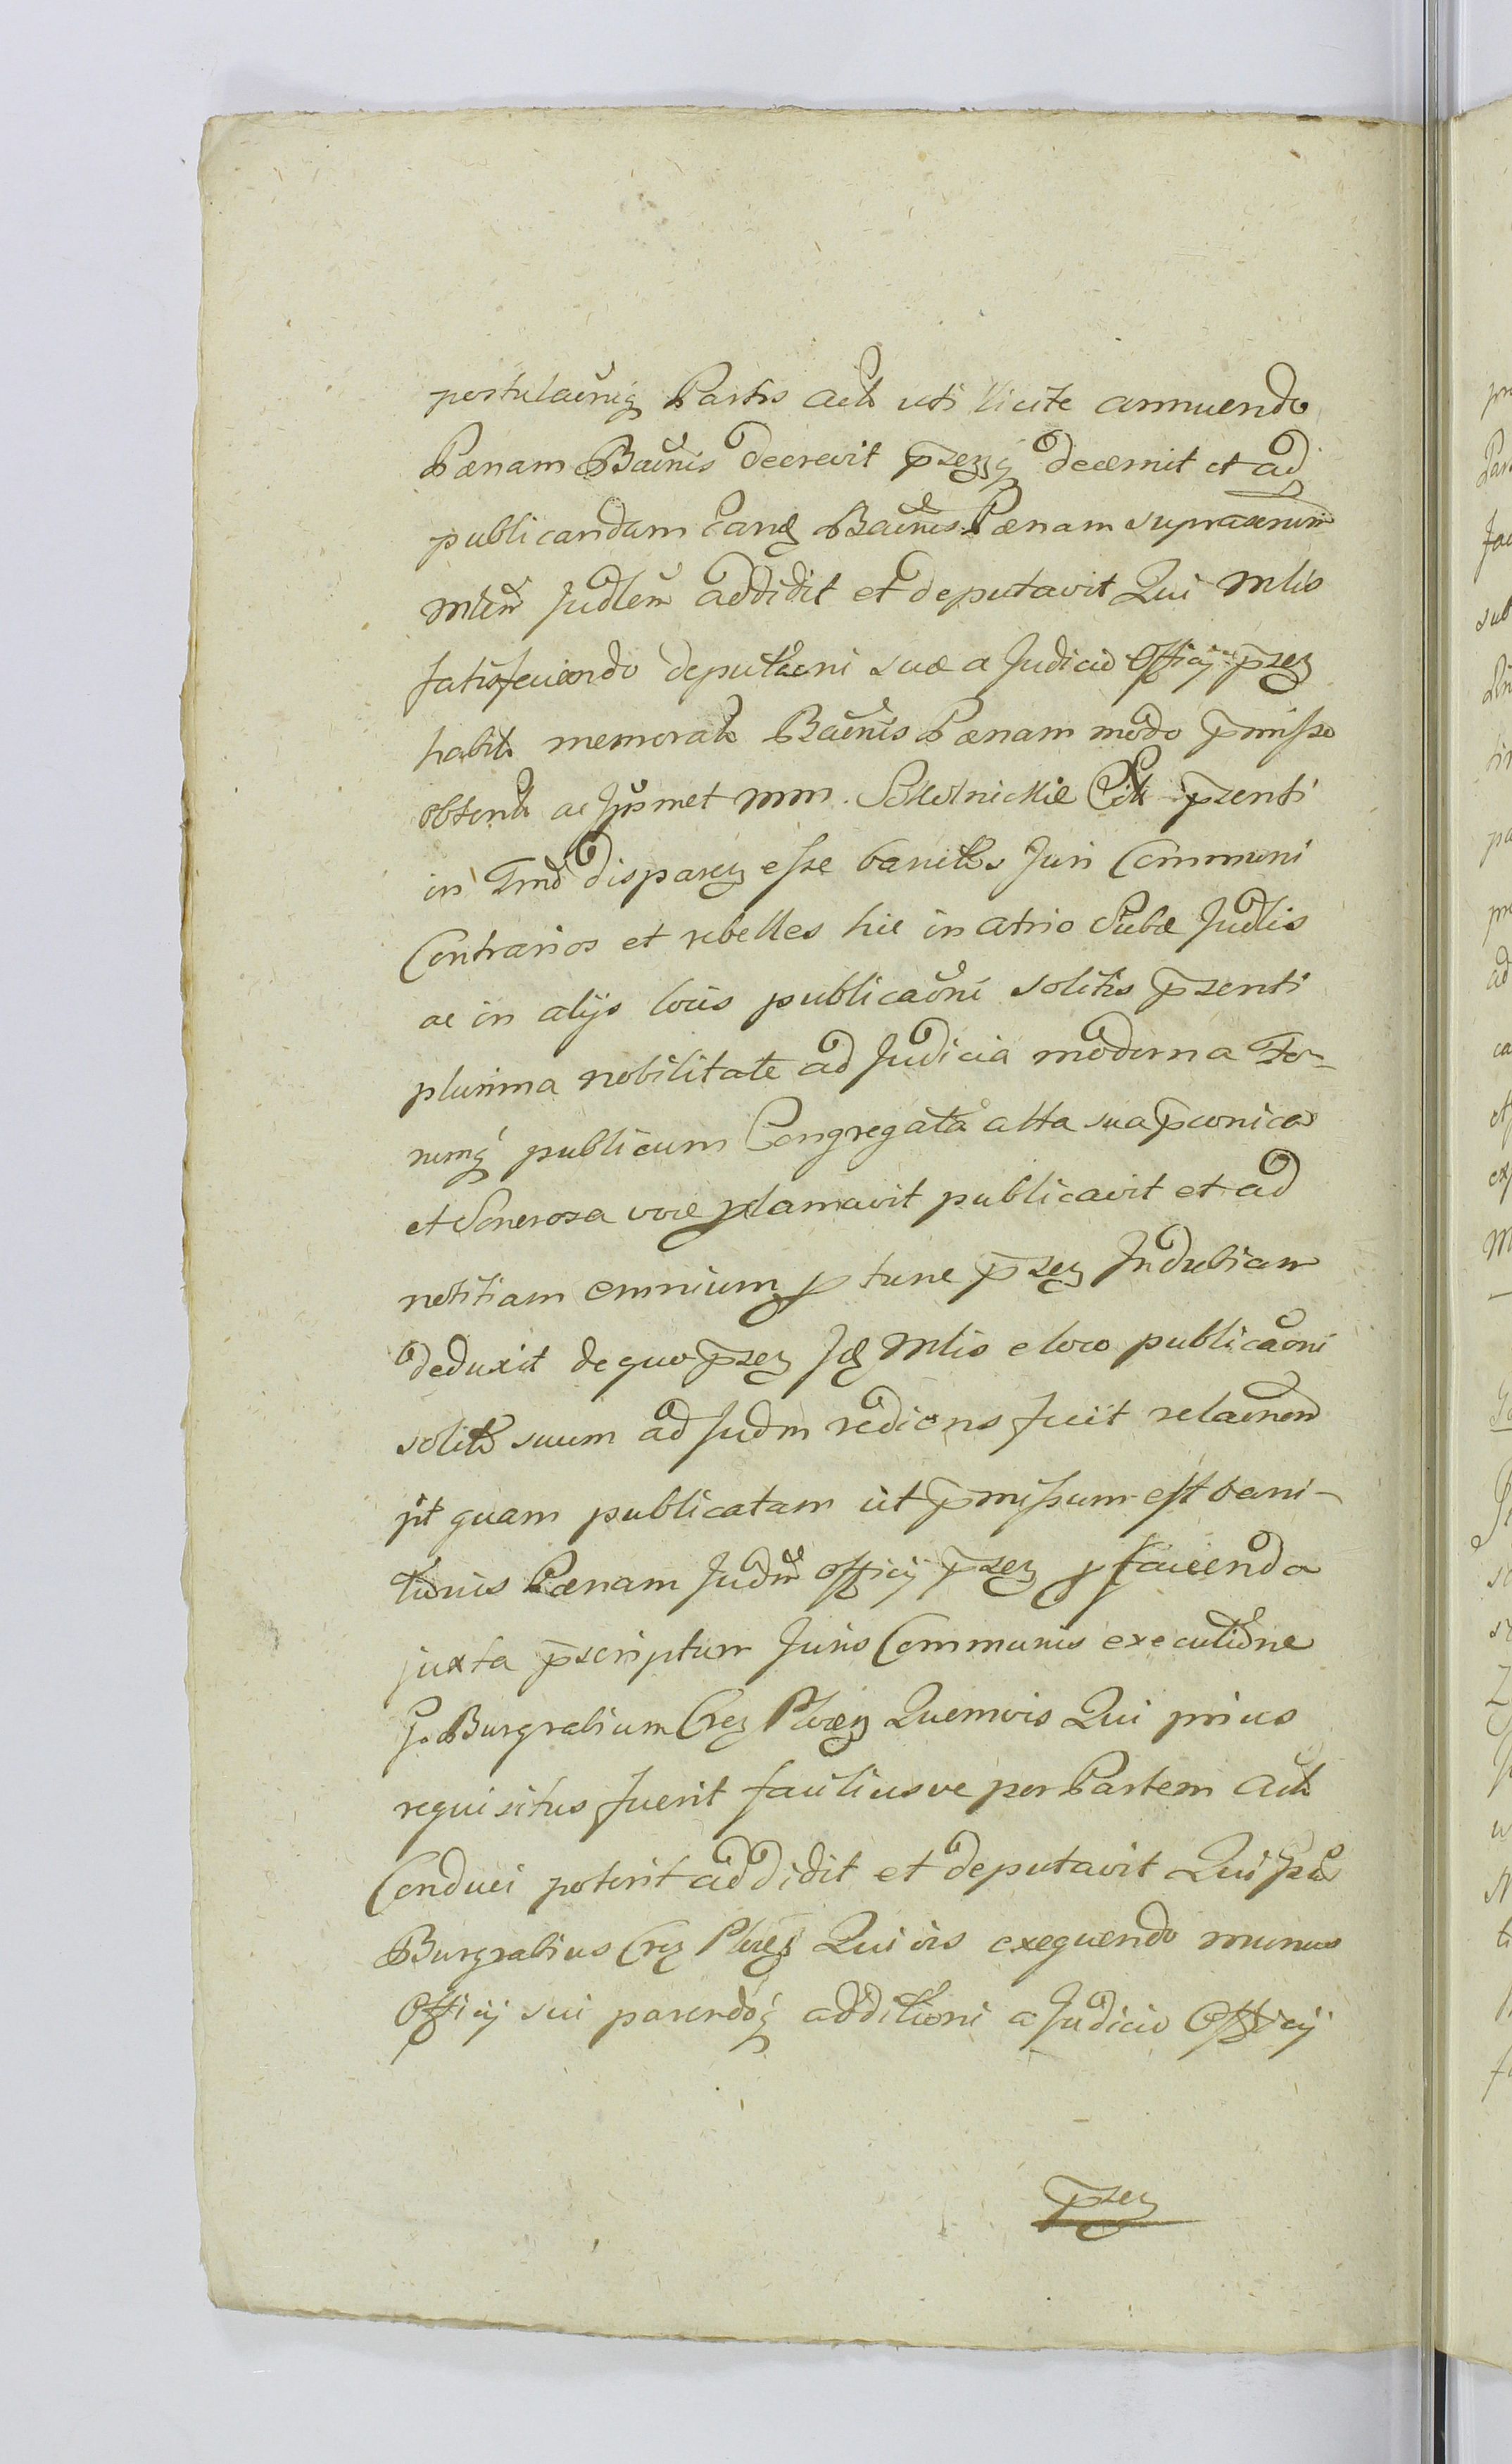 postulaōniq Partis actt uti licite annuendo
Pænam Baōnis decrevit p̄zesq decernit et ad
publicandum eand Baōnis Pænam supraserium
mlem Judlem addidit et deputavit Qui Mlis
satisfaciendo deputaoni suæ a Judicio Officij p̄zez
habit memorat Baōnis Pænam modo p̄misso
obtent ac Jpsmet mm. Sokolnickie Citt p̄zenti
in Tmo disparez esse banitos Juri Communi
Contrarios et rebelles hic in atrio Subæ Judlis
ac in alijs locis publicaōni solitis p̄zenti
plurima nobilitate ad Judicia moderna Fo-
rumq publicum Congregata alta sua p̄conica
et Sonorosa voce p̄clamavit publicavit et ad
notitiam omnium p tunc p̄zez Indubiam
deduxit de quo p̄zez Jd Mlis e loco publicaōni
solito suum ad Judm rediens fecit relaōnem
pt quam publicatam ut p̄missum est bani-
tionis Pænam Judm officij p̄zez p facienda
juxta p̄scriptum Juris Communis executione
G. Burgrabium Crez Plvez Quemvis Qui prius
requisitus fuerit faciliusve per Partem Actt
Conduci poterit addidit et deputavit Qui
Burgrabius Crez Plvez Quivis exequendo munus
Officij sui parendoq additioni a Judicio Officij
p̄zez